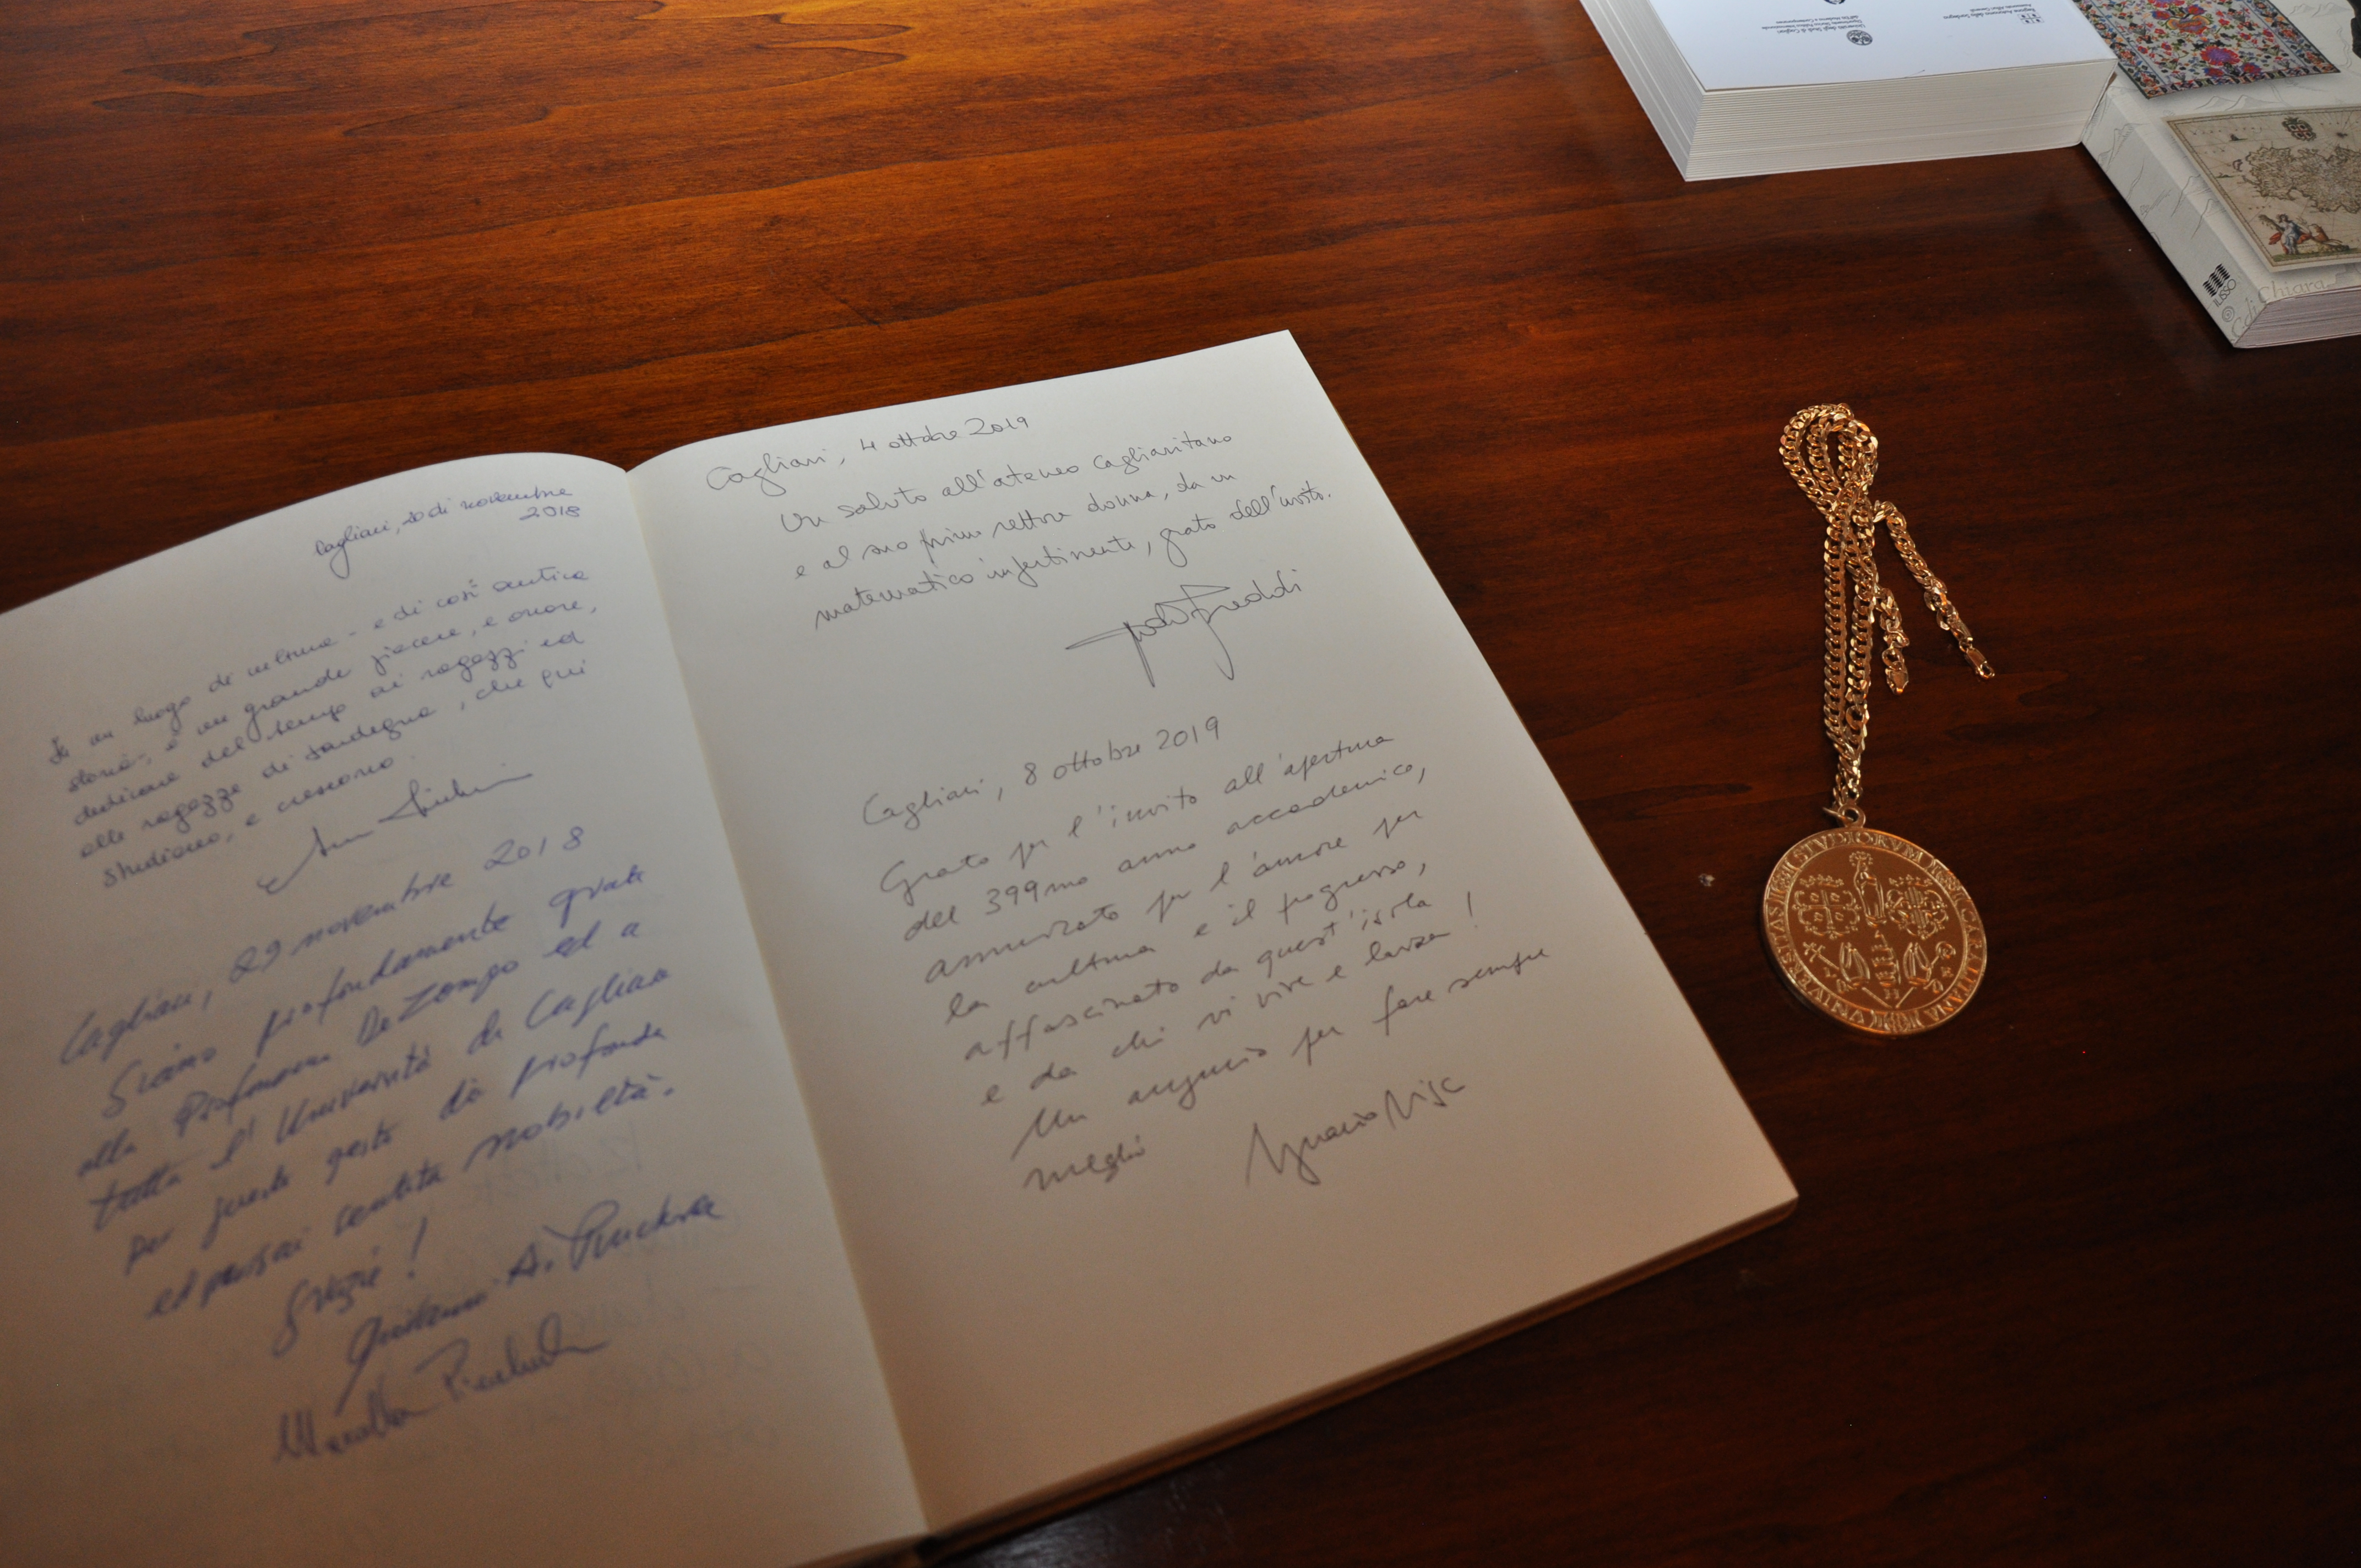 Cagliari, 20 di novembre
2018
In un luogo di cultura - e di così antica
storia -, è un grande piacere, e onore,
dedicare del tempo ai ragazzi ed
alle ragazze di Sardegna, che qui
studiano, e crescono.
Cagliari, 29 novembre 2018
Siamo profondamente grati
alla Professoressa Del Zompo ed a
tutta l'Università di Cagliari
per questo gesto di profonda
ed sentita nobiltà.
Grazie!
Cagliari, 4 ottobre 2019
Un saluto all'ateneo cagliaritano
e al suo primo rettore donna, da un
matematico impertinente, grato dell'invito.
Cagliari, 8 ottobre 2019
Grato per l'invito all'apertura
del 399mo anno accademico,
ammirato per l'amore per
la cultura e il progresso,
affascinato da quest'isola
e da chi vi vive e lavora!
Un augurio per fare sempre
meglio
Ignazio Visco
Università degli Studi di Cagliari
Regione Autonoma della Sardegna
ILISSO
Chiara
UNIVERSITAS STVDIORVM CARALITANA